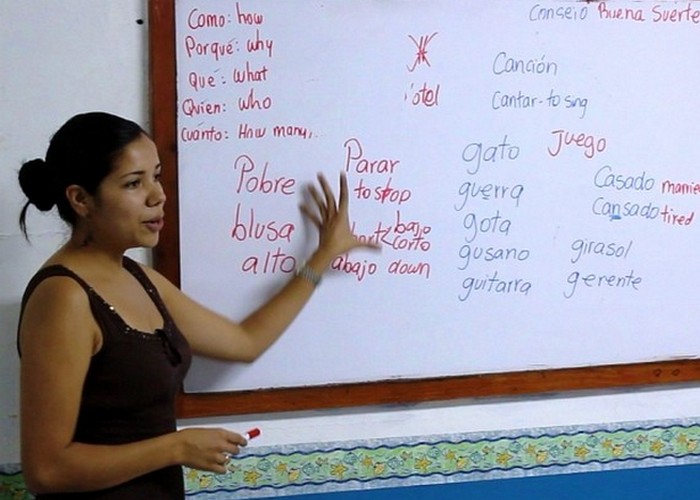 Como: how
Porqué: why
Qué: what
Quien: who
Cuánto: How many
Pobre
blusa
alto
Parar
to stop
bajo
corto
abajo down
Consejo Buena Suerte
Canción
Cantar - to sing
gato
guerra
gota
gusano
guitarra
Juego
Casado
Cansado tired
girasol
gerente